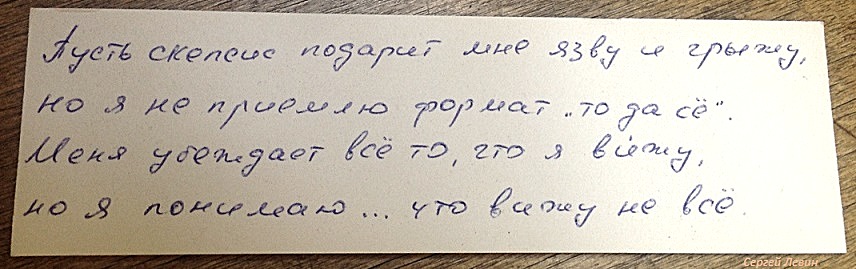 Пусть скепсис подарит мне язву и грыжу,
но я не приемлю формат „то да сё".
Меня убеждает всё то, что я вижу,
но я понимаю... что вижу не всё.
Сергей Левин